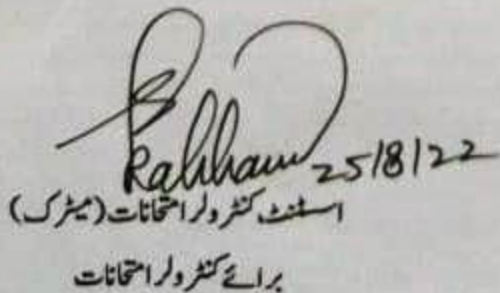 25/8/22
اسسٹنٹ کنٹرولر امتحانات (میٹرک)
برائے کنٹرولر امتحانات